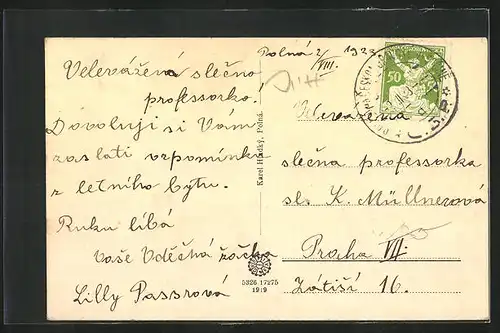 Polná 2/VIII. 1923
Velevážená slečno
professorko!
Dovoluji si Vám
zaslati vzpomínku
z letního bytu.
Ruku líbá
vaše vděčná žačka
Lilly Passrová
Karel Hladký, Polná.
5326 17275
1919
50
slečna professorka
sl. K. Müllnerová
Praha VII.
Zátiší 16.